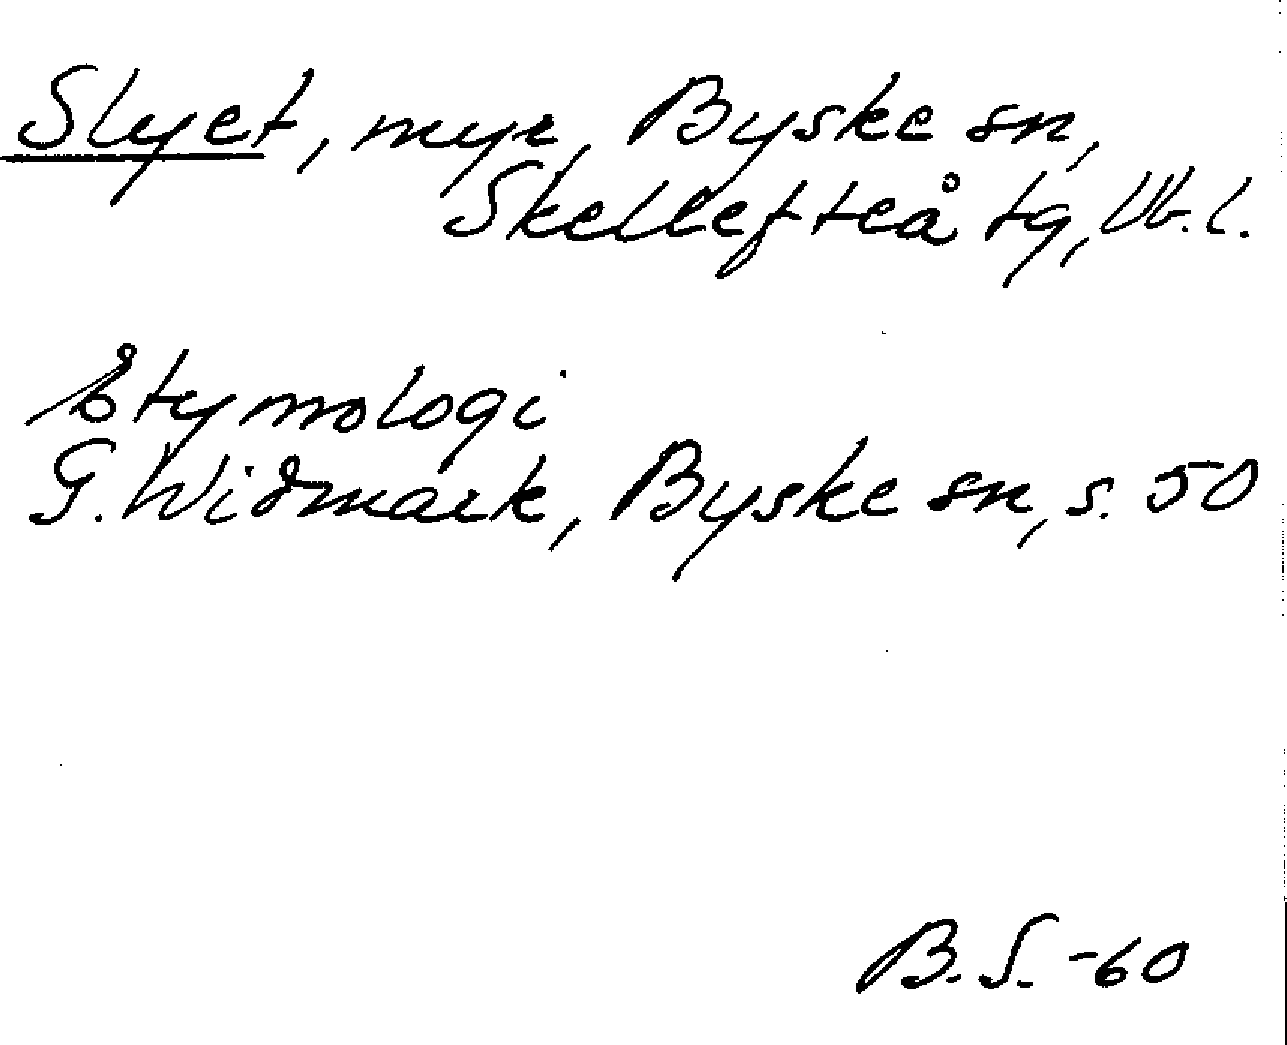 Slyet, myr, Byske sn,
Skellefteå tg, Vb.l.
Etymologi
G. Widmark, Byske sn, s. 50
B.S. -60